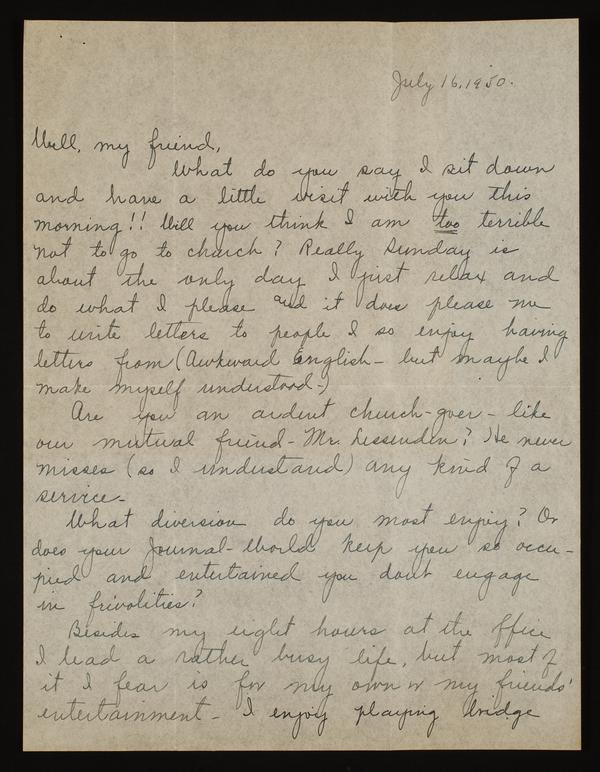 July 16, 1950.
Well, my friend,
What do you say I sit down
and have a little visit with you this
morning!! Will you think I am too terrible
not to go to church? Really Sunday is
about the only day I just relax and
do what I please and it does please me
to write letters to people I so enjoy having
letters from (Awkward English - but maybe I
make myself understood-)
Are you an ardent church-goer - like
our mutual friend - Mr. Lessenden? He never
misses (so I understand) any kind of a
service-
What diversion do you most enjoy? Or
does your Journal-World keep you so occu-
pied and entertained you dont engage
in frivolities?
Besides my eight hours at the office
I lead a rather busy life, but most of
it I fear is for my own or my friends'
entertainment - I enjoy playing bridge